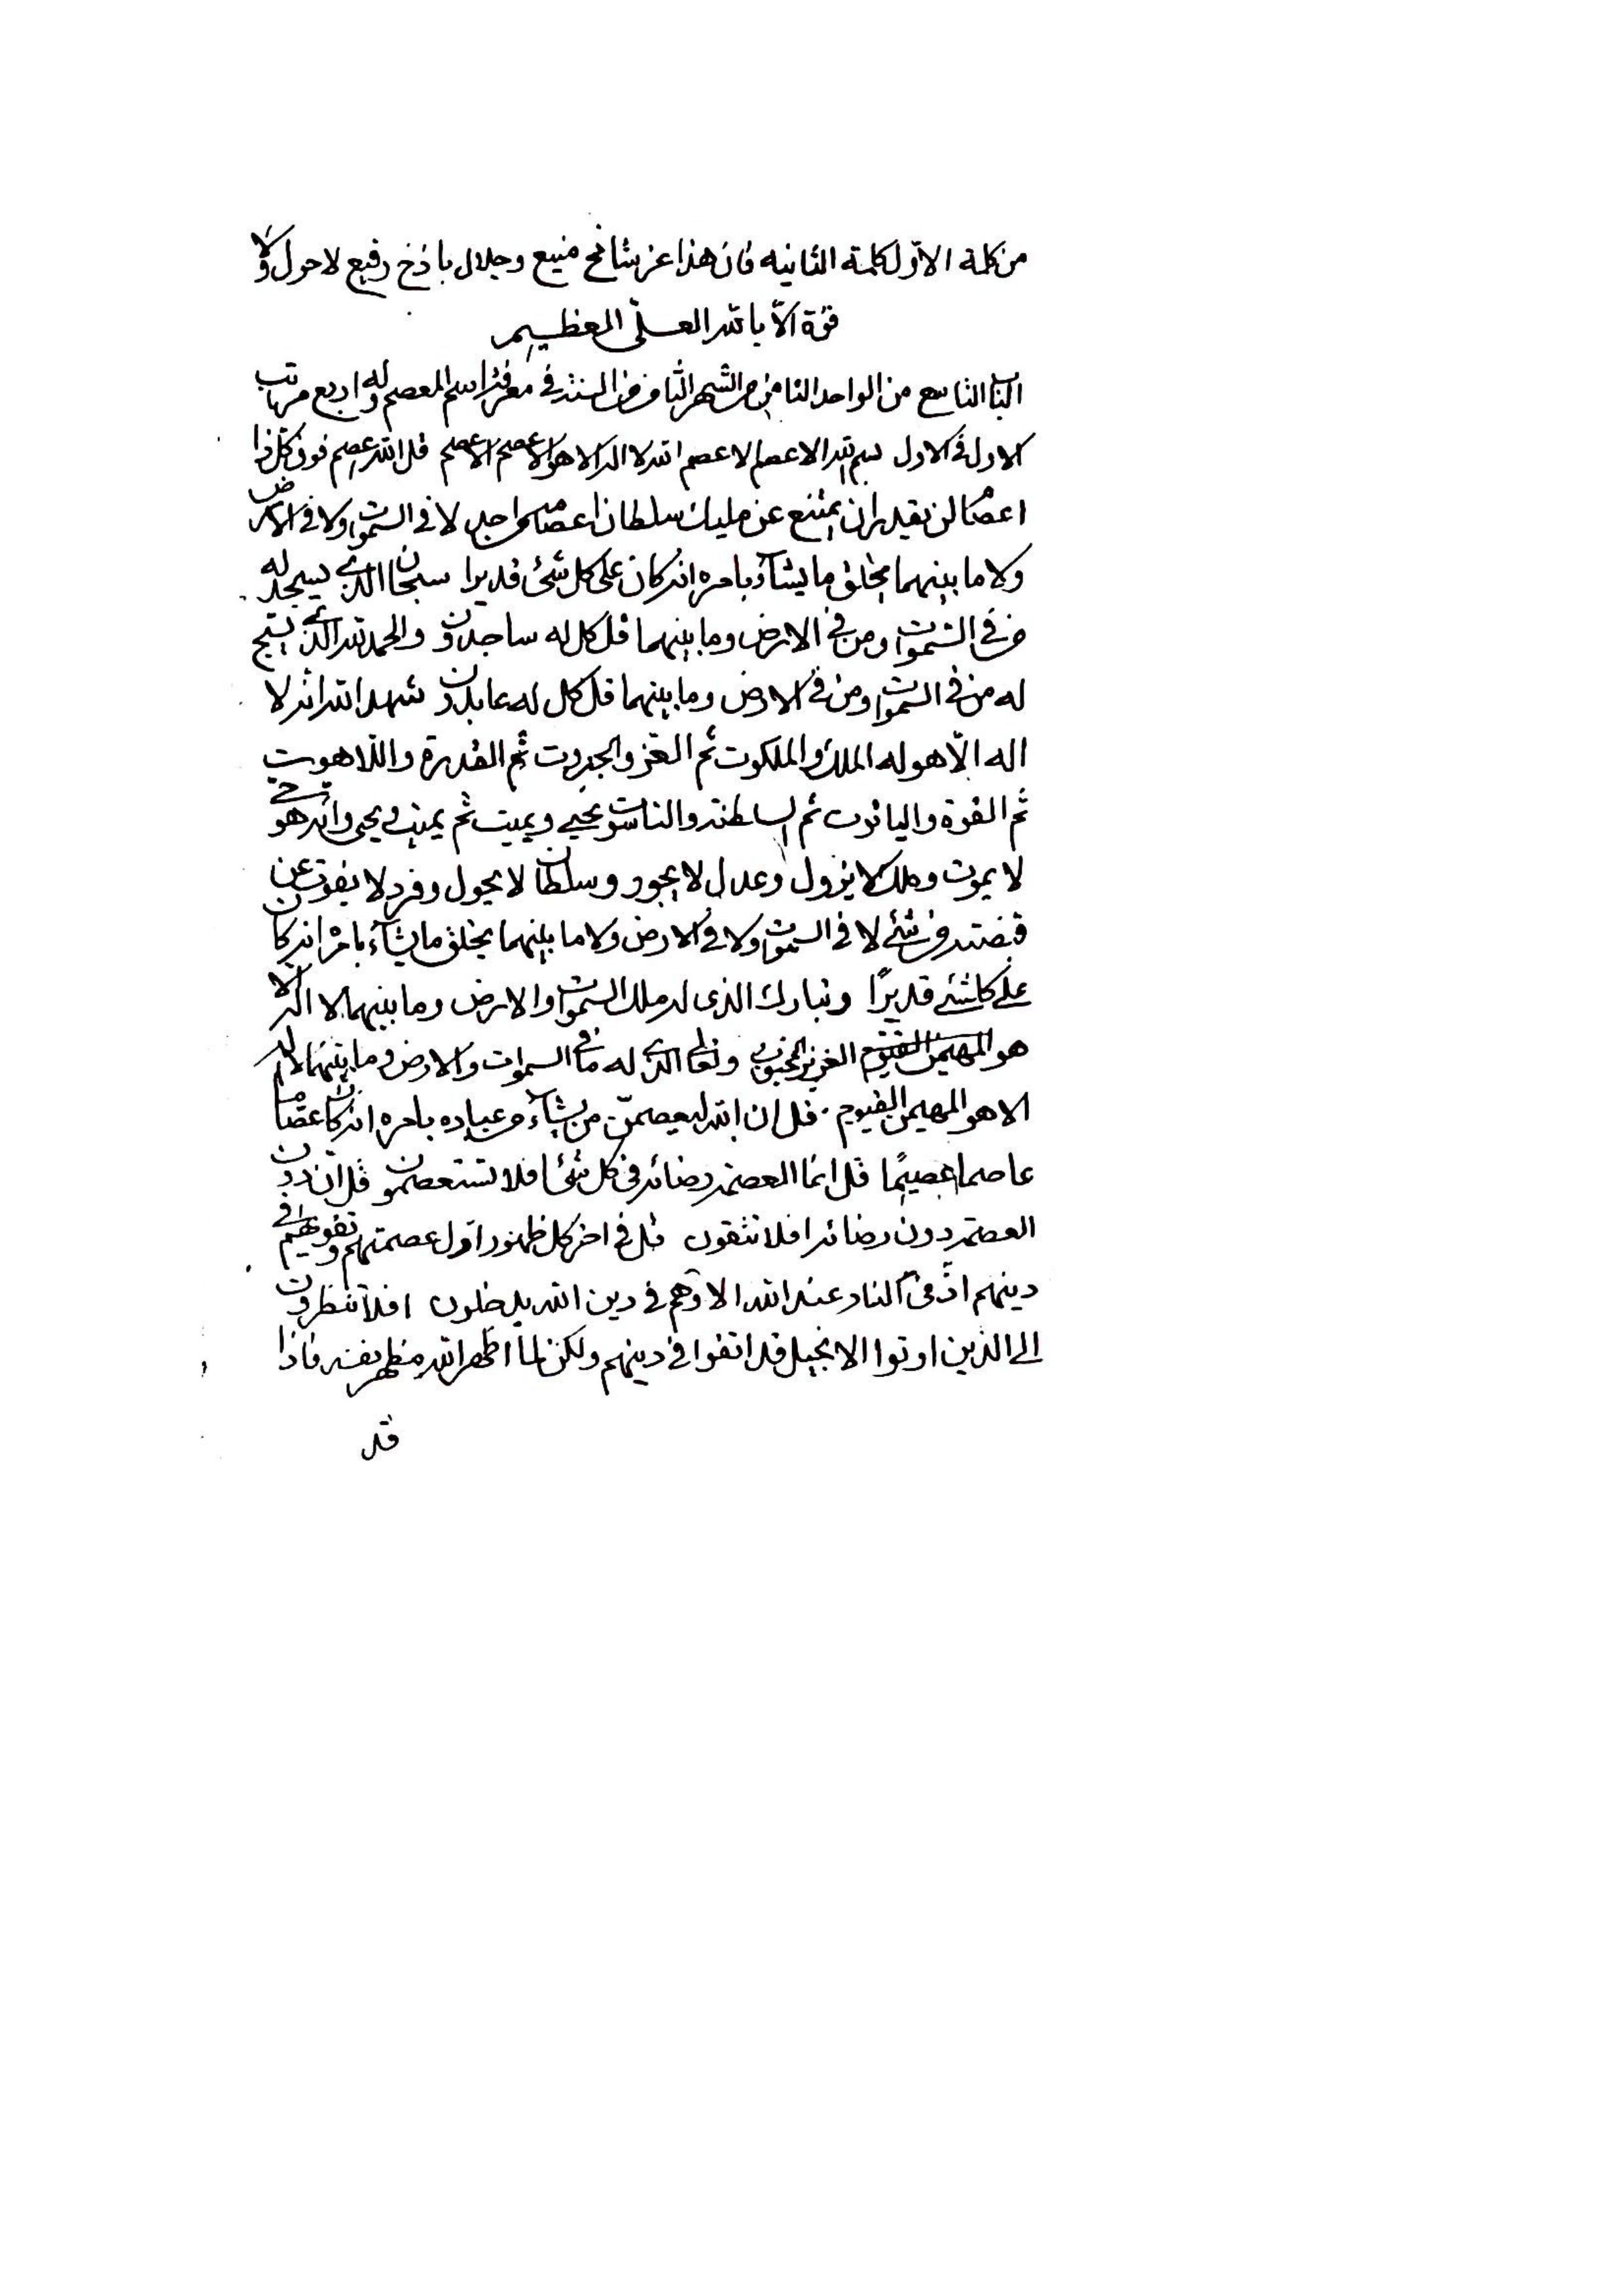 من كلمة الاوّل كلمة الثانيه فان هذا عز شامخ منيع وجلال باذخ رفيع لا حول ولا
قوّة الّا بالله العلىّ العظيم
الباب التاسع من الواحد الثامن من الشهر الثامن من السنة فى معرفة اسم المعصم وله اربع مراتب
الاول فى الاول بسم الله الاعصم الاعصم الله لا اله الا هو الاعصم الاعصم قل الله اعصم فوق كل ذا
اعصام لن يقدر ان يمتنع عن مليك سلطان اعصامه من احد لا فى السموات ولا فى الارض
ولا ما بينهما يخلق ما يشآء بامره انه كان على كل شئ قديرا سبحان الذى يسجد له
من فى السموات ومن فى الارض وما بينهما قل كل له ساجدون والحمد لله الذى يسبح
له من فى السموات ومن فى الارض وما بينهما قل كل له عابدون شهد الله انه لا
اله الّا هو له الملك والملكوت ثم العز والجبروت ثم القدرة واللاهوت
ثم القوة والياقوت ثم السلطنة والناسوت يحيى ويميت ثم يميت ويحيى وانه هو حى
لا يموت وملك لا يزول وعدل لا يجور وسلطان لا يحول وفرد لا يفوت عن
قبضته من شئ لا فى السموات ولا فى الارض ولا ما بينهما يخلق ما يشآء بامره انه كان
على كلشئ قديرًا وتبارك الذى له ملك السموات والارض وما بينهما لا اله الا
هو المهيمن القيوم العزيز المحبوب وتعالى الذى له ما فى السموات والارض وما بينهما لا اله
الا هو المهيمن القيوم. قل ان الله ليعصمنّ من يشآء من عباده بامره انه كان عصّاما
عاصما عصيمًا قل انما العصمة رضائه فى كل شئ افلا تستعصمون قل ان دون
العصمة دون رضائه افلا تتقون قل فى اخر كل ظهور اول عصمتهم وتقويهم فى
دينهم ادنى النار عند الله الا وهم فى دين الله يدخلون افلا تنظرون
الى الذين اوتوا الانجيل قد اتقوا فى دينهم ولكن لما اظهر الله مظهر نفسه فاذا
قد